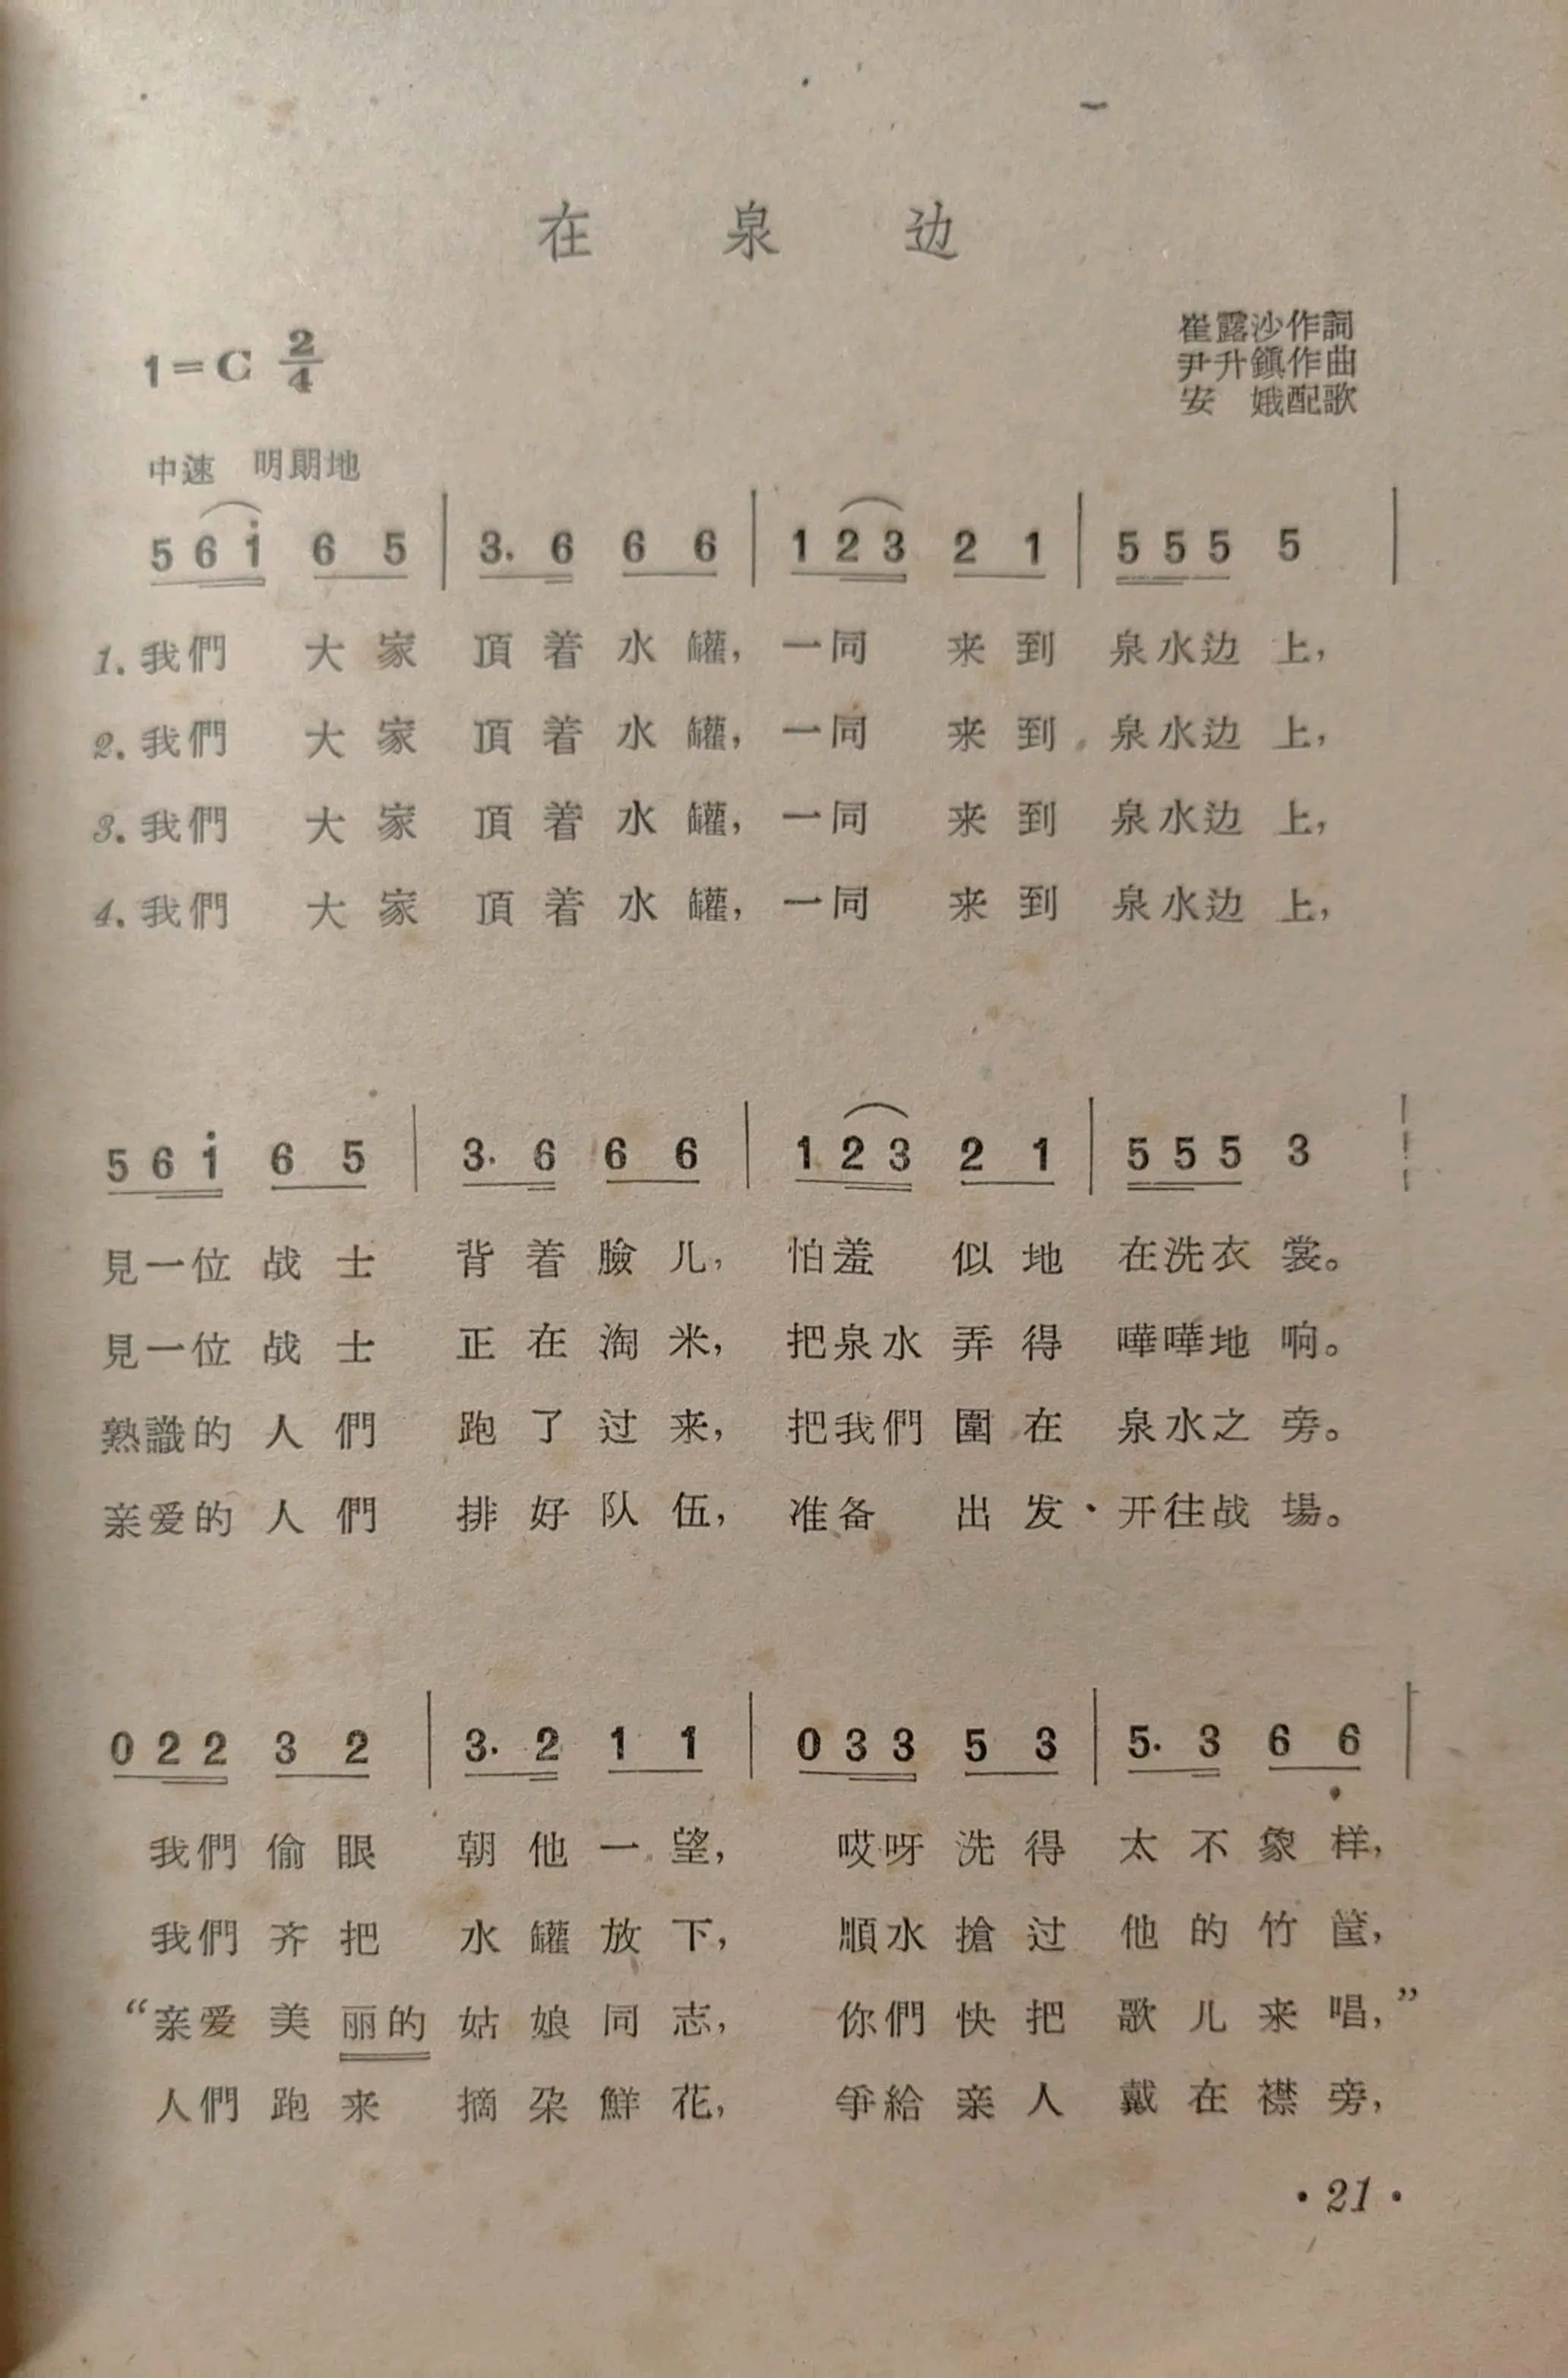 在泉边
1=C 2/4
崔露沙作詞
尹升鎭作曲
安　娥配歌
中速　明朗地
5 6 i 6 5 | 3. 6 6 6 | 1 2 3 2 1 | 5 5 5 5 |
1. 我們 大家 頂着水罐，一同 来到 泉水边上，
2. 我們 大家 頂着水罐，一同 来到 泉水边上，
3. 我們 大家 頂着水罐，一同 来到 泉水边上，
4. 我們 大家 頂着水罐，一同 来到 泉水边上，
5 6 i 6 5 | 3. 6 6 6 | 1 2 3 2 1 | 5 5 5 3 |
見一位战士 背着臉儿，怕羞 似地 在洗衣裳。
見一位战士 正在淘米，把泉水弄得 嘩嘩地响。
熟識的人們 跑了过来，把我們圍在 泉水之旁。
亲爱的人們 排好队伍，准备 出发、开往战場。
0 2 2 3 2 | 3. 2 1 1 | 0 3 3 5 3 | 5. 3 6 6 |
我們偷眼 朝他一望，哎呀洗得 太不象样，
我們齐把 水罐放下，順水搶过 他的竹筐，
“亲爱美丽的 姑娘同志，你們快把 歌儿来唱，”
人們跑来 摘朶鮮花，爭給亲人 戴在襟旁，
·21·